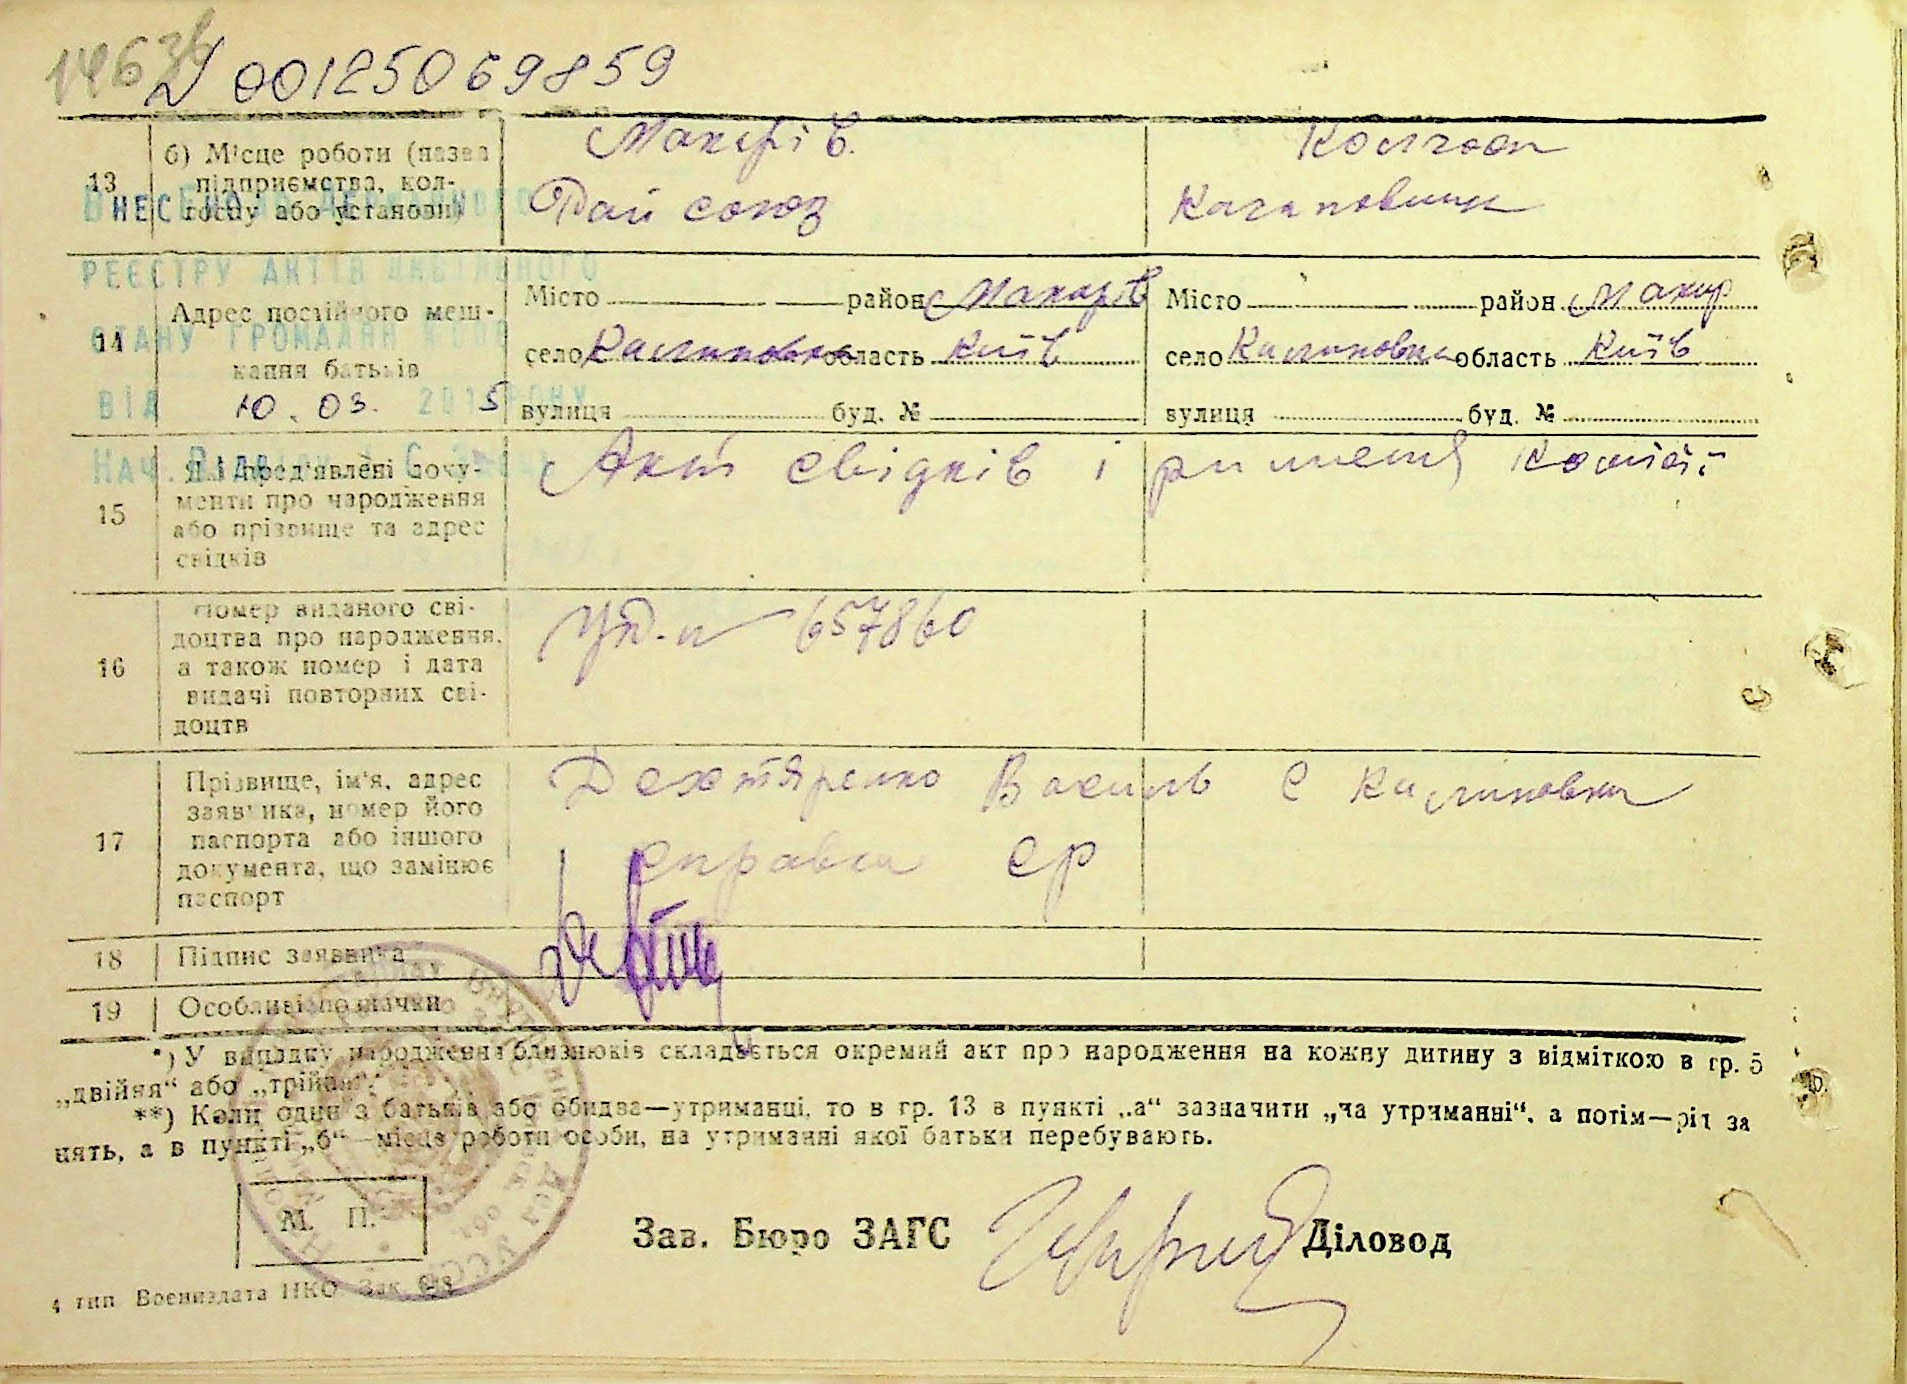 00125069859
13
б) Місце роботи (назва
підприємства, кол-
госпу або установи)
Макарів.
Рай союз
Колгосп
Каганович
14
Адрес постійного меш-
кання батьків
Місто район Макарів
село Калиновка область Київ
вулиця буд. №
Місто район Макар
село Калиновка область Київ
вулиця буд. №
РЕЄСТРУ АКТІВ ЦИВІЛЬНОГО
СТАНУ ГРОМАДЯН
ВІД 10.03. 2015 РОКУ
15
Які пред'явлені доку-
менти про народження
або прізвище та адрес
свідків
Акт свідків і комісії
16
Номер виданого сві-
доцтва про народження,
а також номер і дата
видачі повторних сві-
доцтв
657860
17
Прізвище, ім'я, адрес
заявника, номер його
паспорта або іншого
документа, що замінює
паспорт
Дехтяренко Василь с Калиновка
справка ср
18
Підпис заявника
19
Особливі позначки
*) У випадку народження близнюків складається окремий акт про народження на кожну дитину з відміткою в гр. 5
„двійня“ або „трійня“.
**) Коли один з батьків або обидва—утриманці, то в гр. 13 в пункті „а“ зазначити „на утриманні“, а потім—рід за
нять, а в пункті „б“—місце роботи особи, на утриманні якої батьки перебувають.
М. П.
Зав. Бюро ЗАГС
Діловод
4 тип Воениздата НКО Зак.